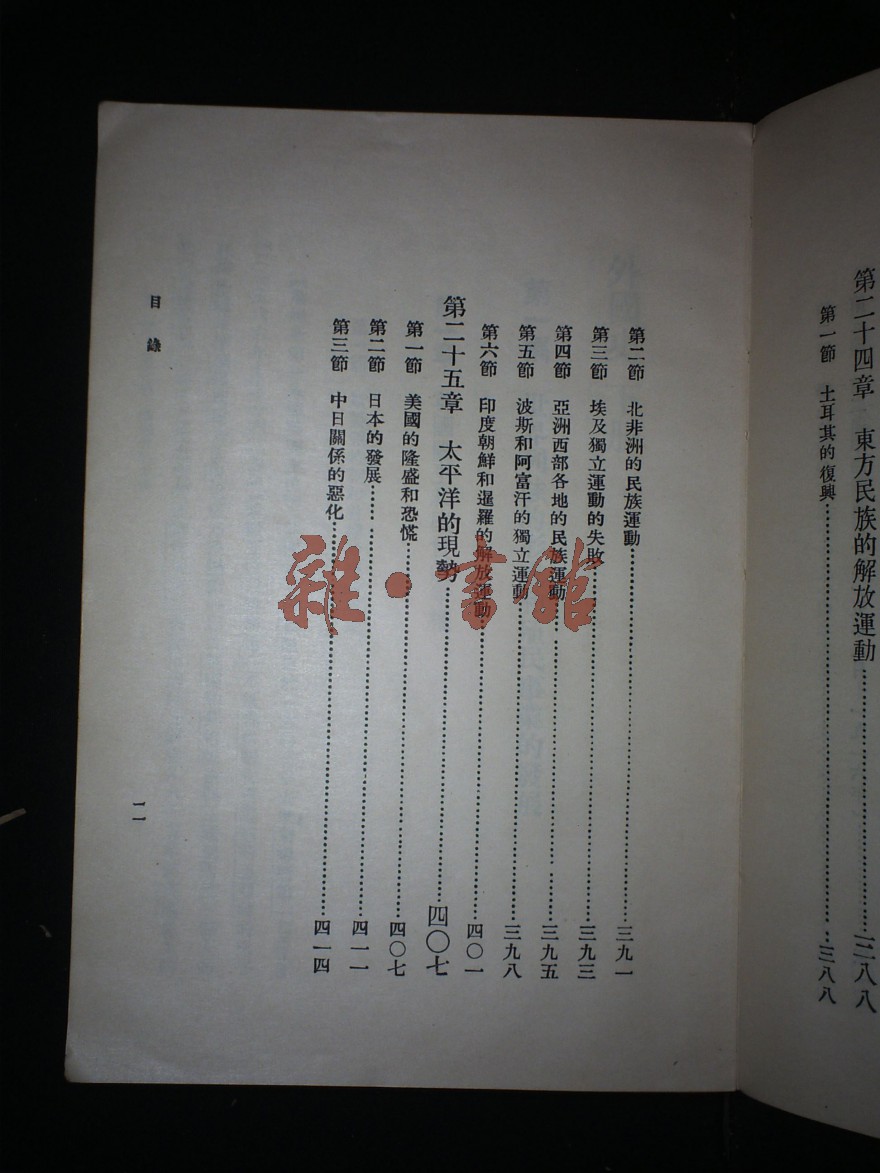 第二十四章　東方民族的解放運動……三八八
第一節　土耳其的復興……三八八
第二節　北非洲的民族運動……三九一
第三節　埃及獨立運動的失敗……三九三
第四節　亞洲西部各地的民族運動……三九五
第五節　波斯和阿富汗的獨立運動……三九八
第六節　印度朝鮮和暹羅的解放運動……四〇一
第二十五章　太平洋的現勢……四〇七
第一節　美國的隆盛和恐慌……四〇七
第二節　日本的發展……四一一
第三節　中日關係的惡化……四一四
目錄
一一
雜·書館